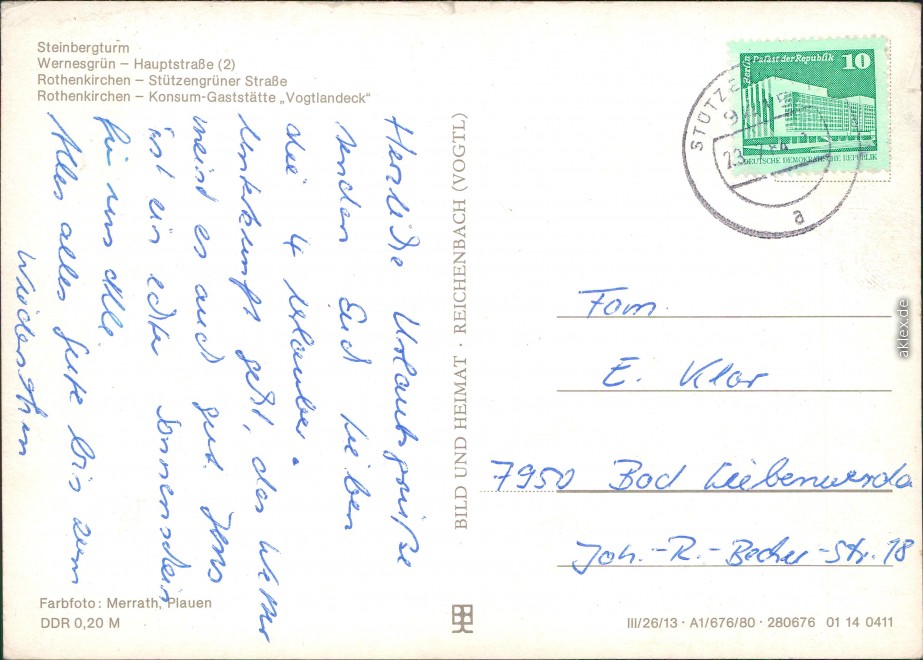 Steinbergturm
Wernesgrün – Hauptstraße (2)
Rothenkirchen – Stützengrüner Straße
Rothenkirchen – Konsum-Gaststätte „Vogtlandeck"
Herzliche Urlaubsgrüße
senden Euch lieben
die 4 Urlauber.
Unterkunft geht, das Wetter
meint es auch gut. Jens
ist ein echter Sonnenschein
für uns Alle.
Alles alles gute bis zum
Wiedersehn
Farbfoto: Merrath, Plauen
DDR 0,20 M
BILD UND HEIMAT · REICHENBACH (VOGTL)
Berlin Palast der Republik 10
DEUTSCHE DEMOKRATISCHE REPUBLIK
STÜTZE
23
a
Fam.
E. Klar
7950 Bad Liebenwerda
Joh.-R.-Becher-Str. 18
III/26/13 · A1/676/80 · 280676 01 14 0411
aklex.de